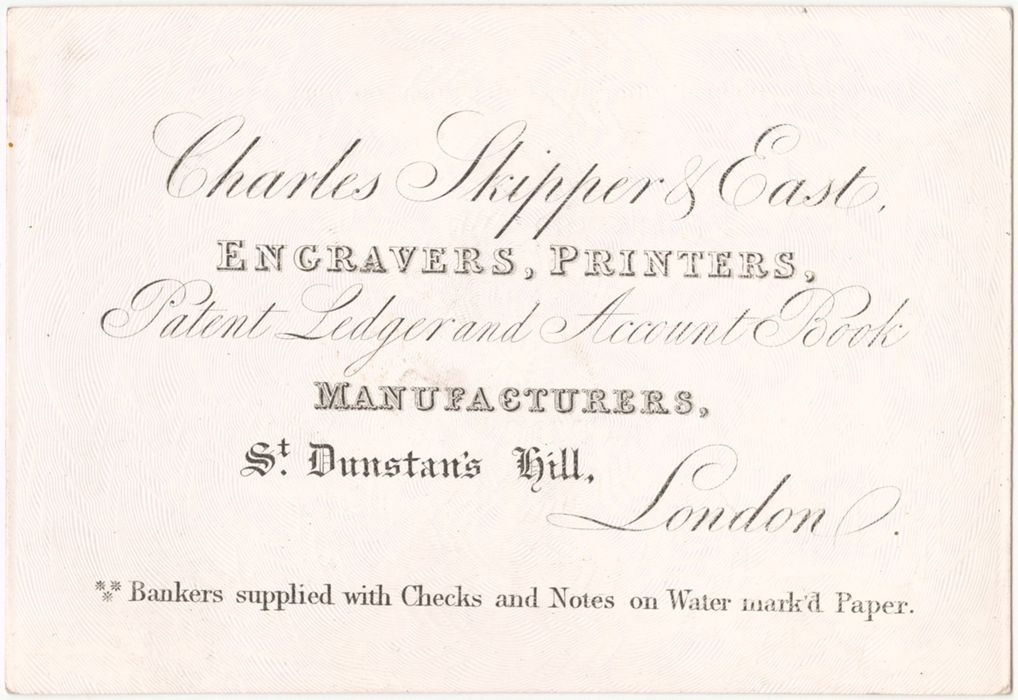 Charles Skipper & East,
ENGRAVERS, PRINTERS,
Patent Ledger and Account Book
MANUFACTURERS,
St. Dunstan's Hill,
London.
*** Bankers supplied with Checks and Notes on Water mark'd Paper.